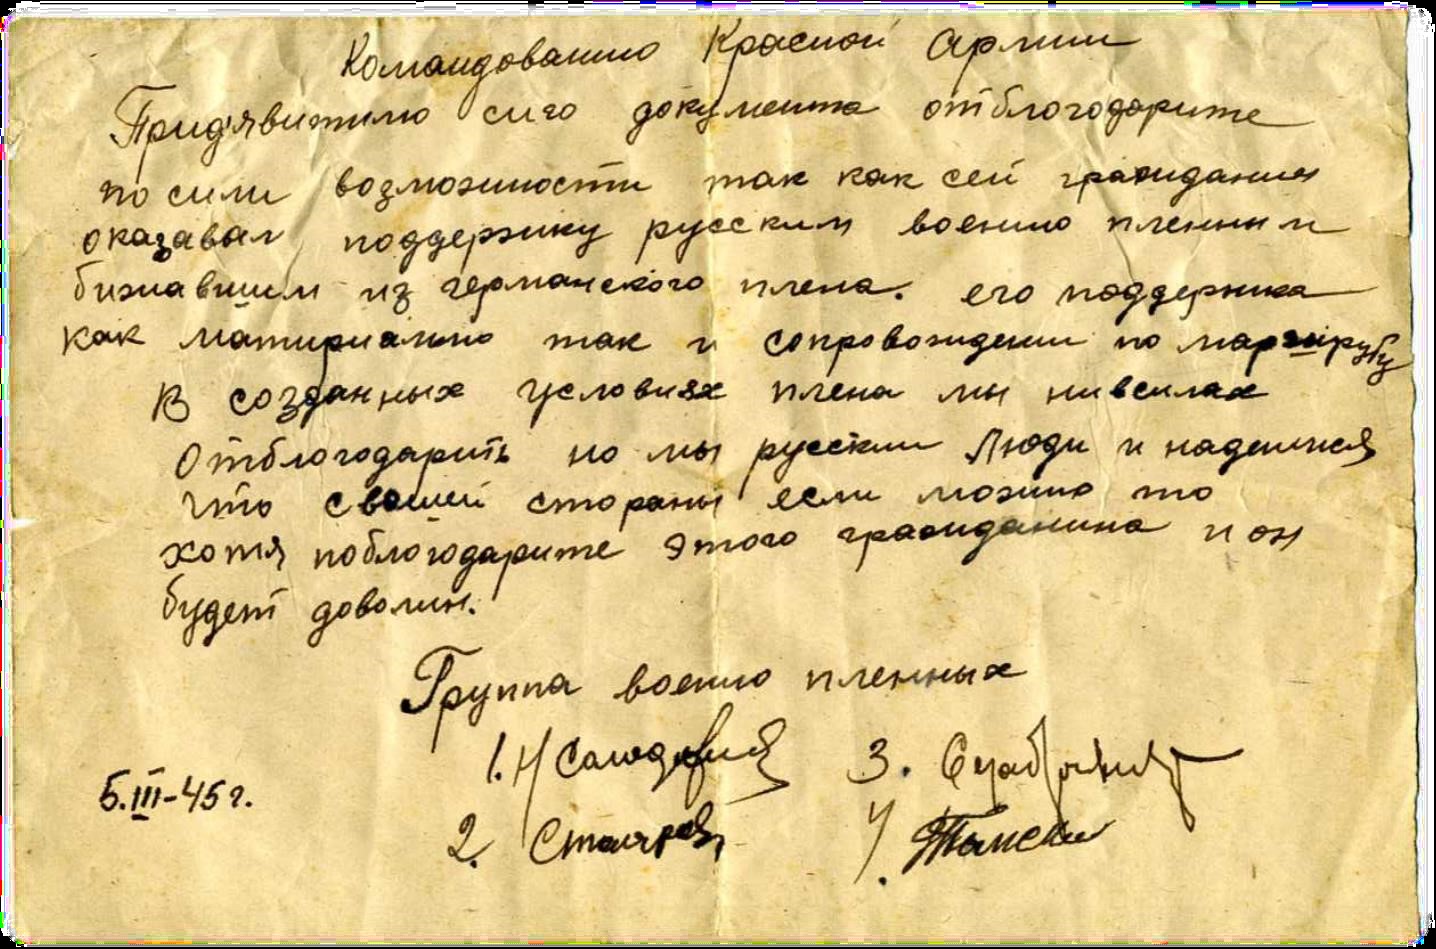 Командованию Красной Армии
Придявитилю сиго документа отблогодорите
по сили возможности так как сей гражданин
оказавал поддержку русским военно пленным
бижавшим из германского плена. его поддержка
как матириально так и сопровождении по маршруту
В созданных условиях плена мы нивсилах
отблогодарить но мы русские Люди и надеимся
что свашей стораны если можно то
хотя поблогодарите этого гражданина и он
будет доволин.
Группа военно пленных
1. Н
3.
5.III-45 г.
2. Столяров
4.